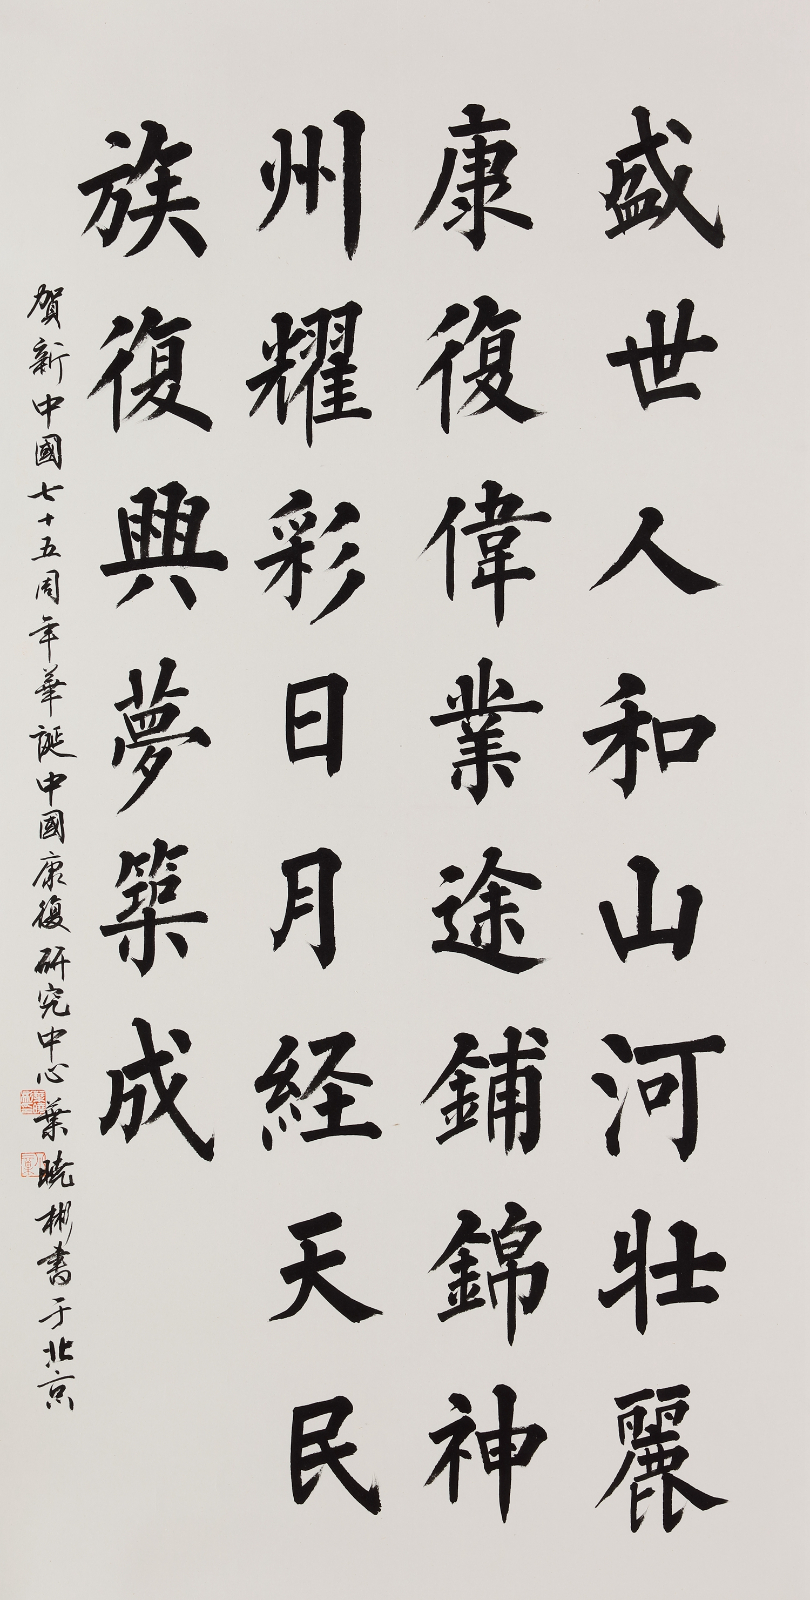 盛世人和山河壯麗
康復偉業途鋪錦神
州耀彩日月経天民
族復興夢築成
贺新中國七十五周年華誕中國康復研究中心葉曉彬書于北京